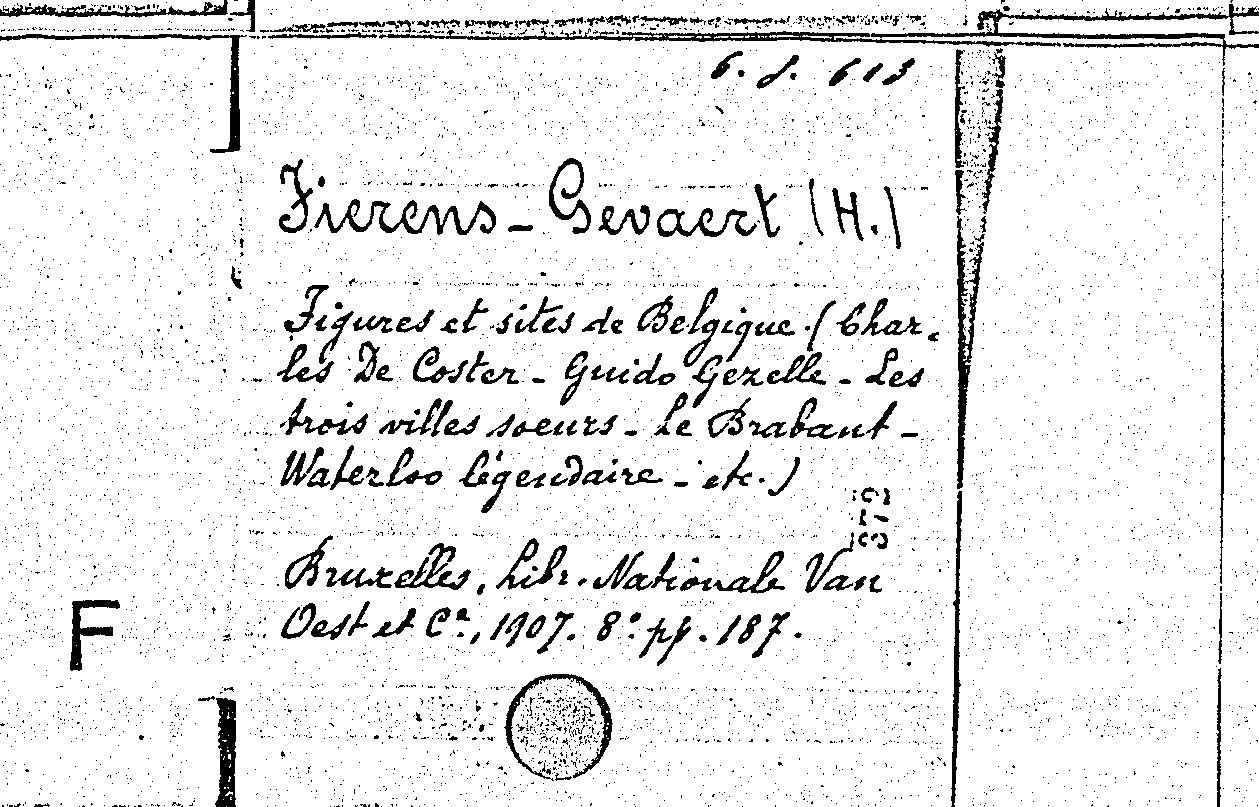 6. J. 613
Fierens-Gevaert (H.)
Figures et sites de Belgique. (Char-
les De Coster - Guido Gezelle - Les
trois villes soeurs - Le Brabant -
Waterloo légendaire - etc.)
372
Bruxelles, Libr. Nationale Van
Oest et Cª., 1907. 8° pp. 187.
F